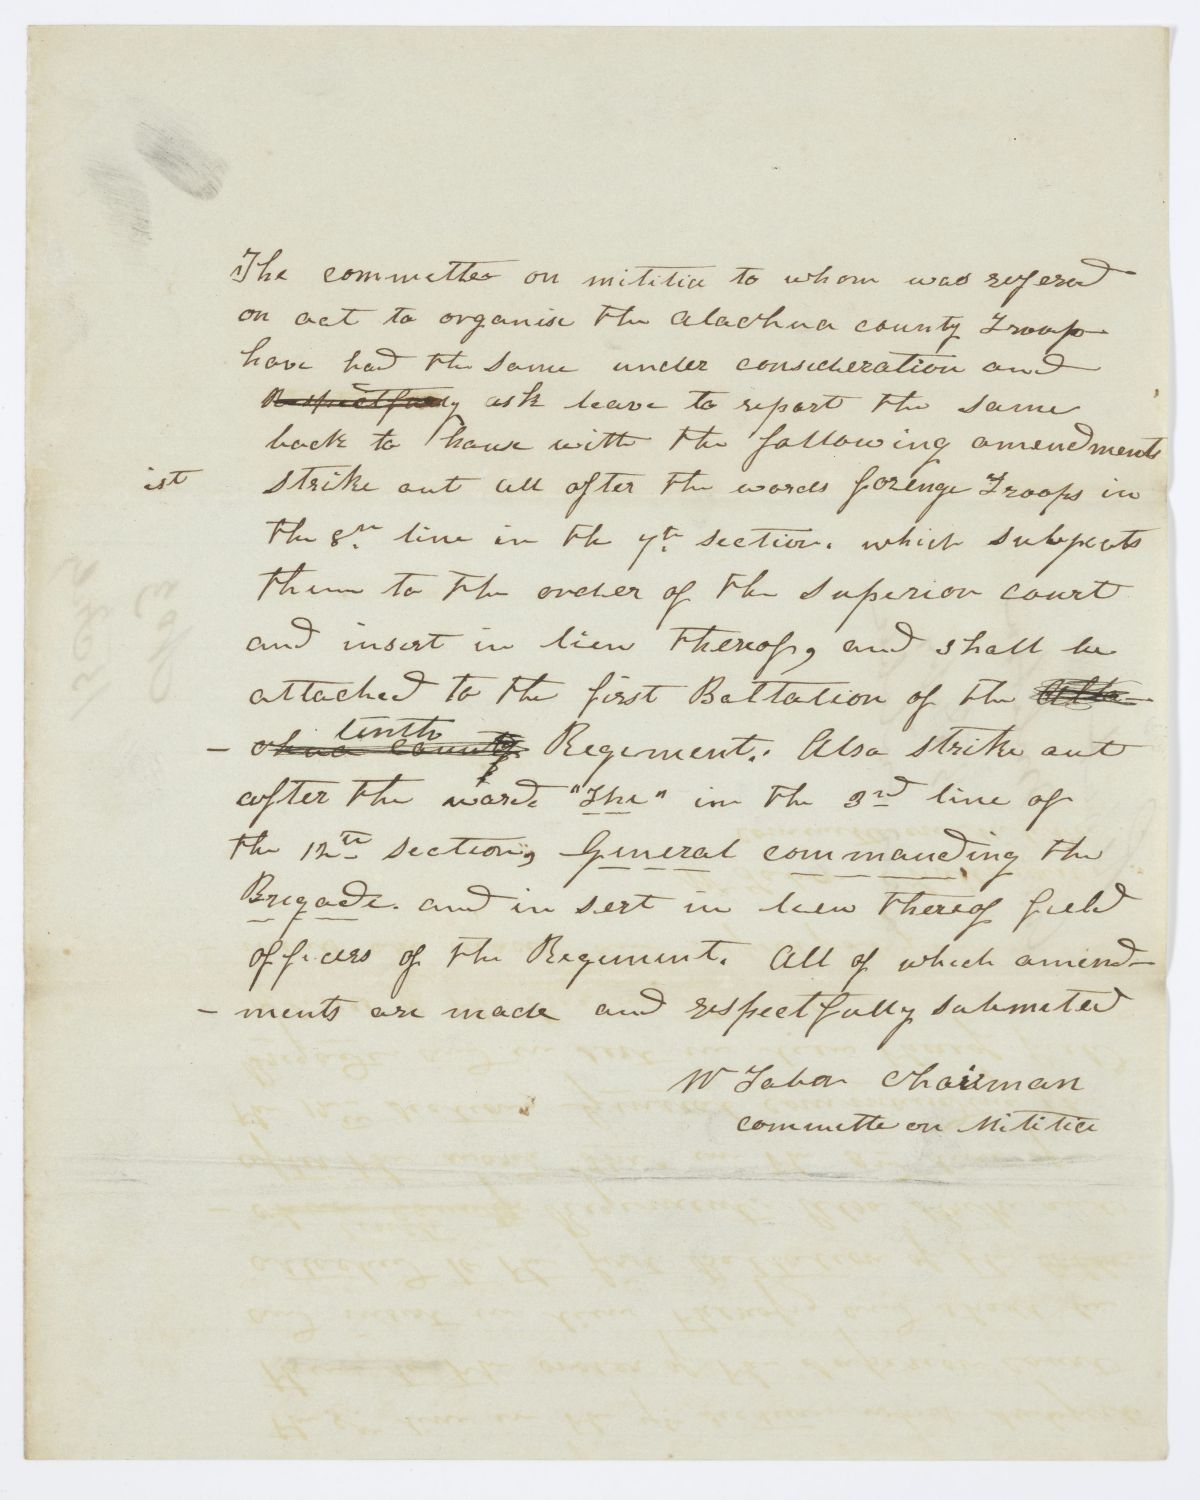 The committee on mititia to whom was refered
on act to organise the Alachua county Troop
have had the same under consideration and
Respectfully ask leave to report the same
back to house with the following amendments
1st strike out all after the words forenge Troops in
the 8th line in the 7th section. which subpects
them to the order of the superior court
and insert in lieu thereof, and shall be
attached to the first Battalion of the Alla-
-chua county tenth Regiment. Also strike out
after the word "The" in the 3rd line of
the 12th section, General commanding the
Brigade. and in sert in lieu thereof field
officers of the Regiment. All of which amend-
-ments are made and respectfully submeted
W Tabor Chairman
committe on Mititia